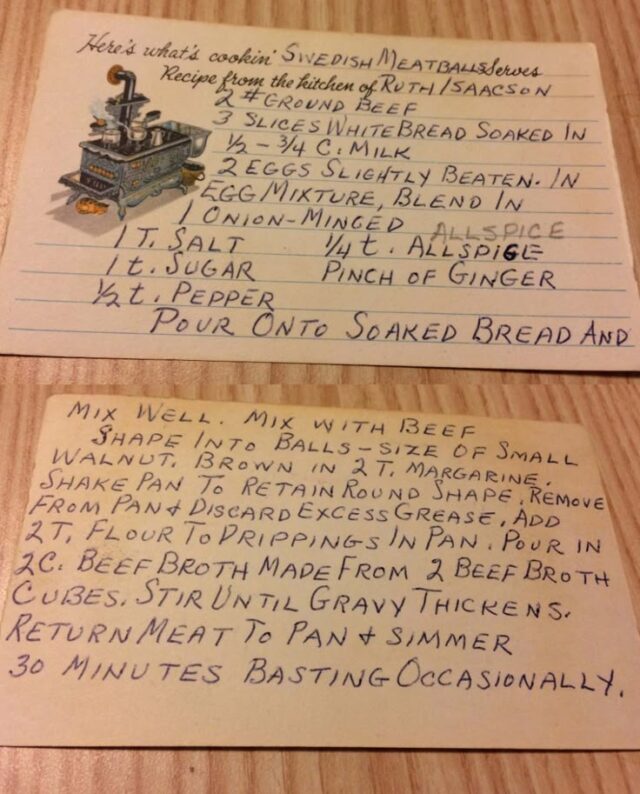 Here's what's cookin' SWEDISH MEATBALLS Serves
Recipe from the kitchen of RUTH ISAACSON
2 # GROUND BEEF
3 SLICES WHITE BREAD SOAKED IN
1/2 - 3/4 C. MILK
2 EGGS SLIGHTLY BEATEN. IN
EGG MIXTURE, BLEND IN
1 ONION-MINCED ALLSPICE
1 T. SALT 1/4 t. ALLSPICE
1 t. SUGAR PINCH OF GINGER
1/2 t. PEPPER
POUR ONTO SOAKED BREAD AND
MIX WELL. MIX WITH BEEF
SHAPE INTO BALLS - SIZE OF SMALL
WALNUT. BROWN IN 2 T. MARGARINE.
SHAKE PAN TO RETAIN ROUND SHAPE. REMOVE
FROM PAN & DISCARD EXCESS GREASE. ADD
2 T. FLOUR TO DRIPPINGS IN PAN. POUR IN
2 C. BEEF BROTH MADE FROM 2 BEEF BROTH
CUBES. STIR UNTIL GRAVY THICKENS.
RETURN MEAT TO PAN & SIMMER
30 MINUTES BASTING OCCASIONALLY.